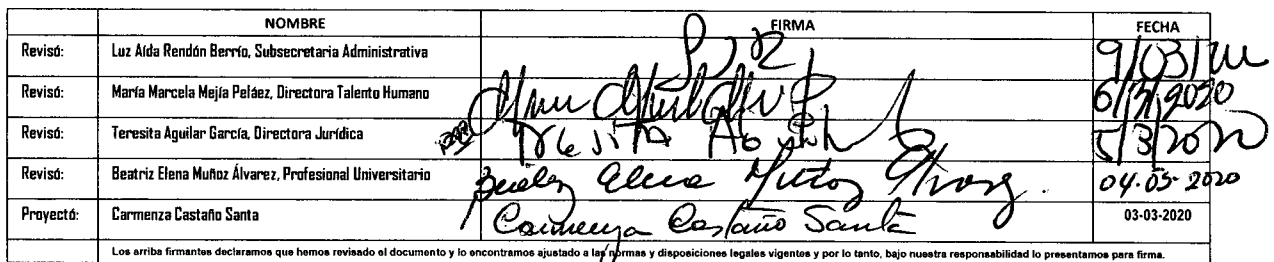 NOMBRE FIRMA FECHA
Revisó: Luz Aída Rendón Berrío, Subsecretaria Administrativa 9/03/
Revisó: María Marcela Mejía Peláez, Directora Talento Humano 6/3/2020
Revisó: Teresita Aguilar García, Directora Jurídica Teresita 5/3/2020
Revisó: Beatriz Elena Muñoz Álvarez, Profesional Universitario Elena Muñoz 04-03-2020
Proyectó: Carmenza Castaño Santa Carmenza Castaño Santa 03-03-2020
Los arriba firmantes declaramos que hemos revisado el documento y lo encontramos ajustado a las normas y disposiciones legales vigentes y por lo tanto, bajo nuestra responsabilidad lo presentamos para firma.